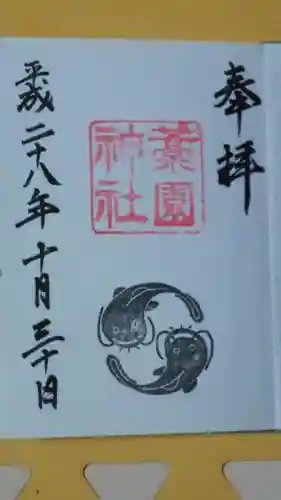 奉拝
葉園神社
平成二十八年十月三十日